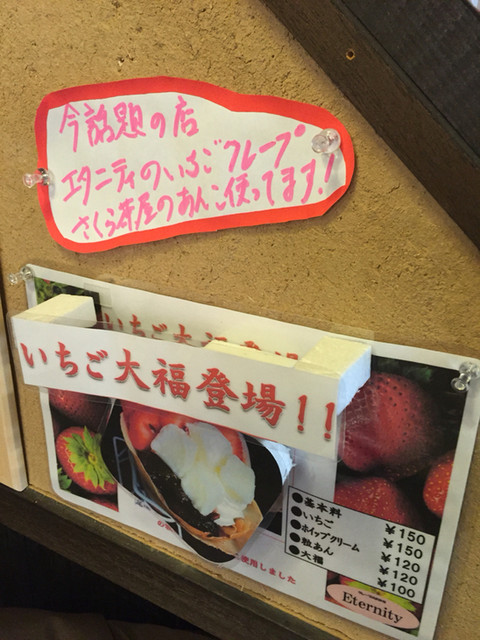 今話題の店
エタニティのいちごクレープ
さくら茶屋のあんこ使ってます!
いちご大
いちご大福登場!!
●基本料 ¥150
●いちご ¥150
●ホイップクリーム ¥120
●粒あん ¥120
●大福 ¥100
使用しました
Eternity